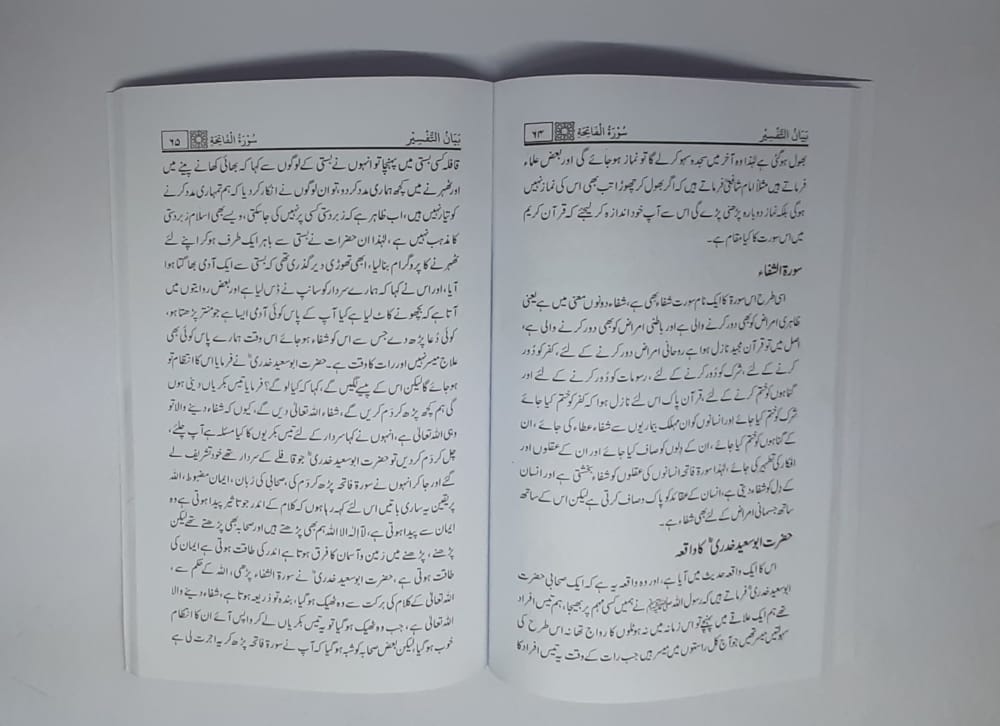 بَیَانُ التَّفْسِیْر سُوْرَۃُ الْفَاتِحَۃِ ۶۴
بھول ہوگئی ہے لہٰذا وہ آخر میں سجدہ سہو کر لے گا تو نماز ہو جائے گی اور بعض علماء
فرماتے ہیں مثلاً امام شافعیؒ فرماتے ہیں کہ اگر بھول کر چھوڑا تب بھی اس کی نماز نہیں
ہوگی بلکہ نماز دوبارہ پڑھنی پڑے گی اس سے آپ خود اندازہ کر لیجئے کہ قرآن کریم
میں اس سورت کا کیا مقام ہے۔
سورۃ الشفاء
اسی طرح اس سورۃ کا ایک نام سورت شفاء بھی ہے، شفاء دونوں معنی میں ہے یعنی
ظاہری امراض کو بھی دور کرنے والی ہے اور باطنی امراض کو بھی دور کرنے والی ہے،
اصل میں تو قرآن مجید نازل ہوا ہے روحانی امراض دور کرنے کے لئے، کفر کو دُور
کرنے کے لئے، شرک کو دُور کرنے کے لئے، رسومات کو دُور کرنے کے لئے اور
گناہوں کو ختم کرنے کے لئے، قرآن پاک اس لئے نازل ہوا کہ کفر کو ختم کیا جائے
شرک کو ختم کیا جائے اور انسانوں کو ان مہلک بیماریوں سے شفاء عطاء کی جائے، ان
کے گناہوں کو ختم کیا جائے، ان کے دلوں کو صاف کیا جائے اور ان کے عقلوں اور
افکار کی تطہیر کی جائے، لہٰذا سورۃ فاتحہ انسانوں کی عقلوں کو شفاء بخشتی ہے اور انسان
کے دل کو شفاء دیتی ہے، انسان کے عقائد کو پاک و صاف کرتی ہے لیکن اس کے ساتھ
ساتھ جسمانی امراض کے لئے بھی شفاء ہے۔
حضرت ابوسعید خدریؓ کا واقعہ
اس کا ایک واقعہ حدیث میں آیا ہے، اور وہ واقعہ یہ ہے کہ ایک صحابی حضرت
ابوسعید خدریؓ فرماتے ہیں کہ رسول اللہ ﷺ نے ہمیں کسی مہم پر بھیجا، ہم تیس افراد
تھے ہم ایک علاقے میں پہنچے تو اس زمانہ میں نہ ہوٹلوں کا رواج تھا نہ اس طرح کی
سہولتیں میسر تھیں جو آج کل راستوں میں میسر ہیں جب رات کے وقت یہ تیس افراد کا
بَیَانُ التَّفْسِیْر سُوْرَۃُ الْفَاتِحَۃِ ۶۵
قافلہ کسی بستی میں پہنچا تو انہوں نے بستی کے لوگوں سے کہا کہ بھائی کھانے پینے میں
اور ٹھہرنے میں کچھ ہماری مدد کر دو، تو ان لوگوں نے انکار کر دیا کہ ہم تمہاری مدد کرنے
کو تیار نہیں ہیں، اب ظاہر ہے کہ زبردستی کسی پر نہیں کی جاسکتی، ویسے بھی اسلام زبردستی
کا مذہب نہیں ہے، لہٰذا ان حضرات نے بستی سے باہر ایک طرف ہو کر اپنے لئے
ٹھہرنے کا پروگرام بنالیا، ابھی تھوڑی دیر گذری تھی کہ بستی سے ایک آدمی بھاگتا ہوا
آیا، اور اس نے کہا کہ ہمارے سردار کو سانپ نے ڈس لیا ہے اور بعض روایتوں میں
آتا ہے کہ بچھو نے کاٹ لیا ہے کیا آپ کے پاس کوئی آدمی ایسا ہے جو منتر پڑھتا ہو،
کوئی دُعا پڑھ دے جس سے اس کو شفاء ہو جائے اس وقت ہمارے پاس کوئی بھی
علاج میسر نہیں اور رات کا وقت ہے۔ حضرت ابوسعید خدریؓ نے فرمایا اس کا انتظام تو
ہو جائے گا لیکن اس کے پیسے لگیں گے، کہا کہ کیا لو گے؟ فرمایا تیس بکریاں دینی ہوں
گی ہم کچھ پڑھ کر دَم کریں گے، شفاء اللہ تعالیٰ دیں گے، کیوں کہ شفاء دینے والا تو
وہی اللہ تعالیٰ ہے، انہوں نے کہا سردار کے لئے تیس بکریوں کا کیا مسئلہ ہے آپ چلئے،
چل کر دَم کر دیں تو حضرت ابوسعید خدریؓ جو قافلے کے سردار تھے خود تشریف لے
گئے اور جا کر انہوں نے سورۃ فاتحہ پڑھ کر دَم کی، صحابی کی زبان، ایمان مضبوط، اللہ
پر یقین یہ ساری باتیں اس لئے کہہ رہا ہوں کہ کلام کے اندر جو تاثیر پیدا ہوتی ہے وہ
ایمان سے پیدا ہوتی ہے، لَا اِلٰہَ الا اللہ ہم بھی پڑھتے ہیں اور صحابہ بھی پڑھتے تھے لیکن
پڑھنے، پڑھنے میں زمین و آسمان کا فرق ہوتا ہے اندر کی طاقت ہوتی ہے ایمان کی
طاقت ہوتی ہے، حضرت ابوسعید خدریؓ نے سورۃ الشفاء پڑھی، اللہ کے حکم سے،
اللہ تعالیٰ کے کلام کی برکت سے وہ ٹھیک ہو گیا، بندہ تو ذریعہ ہوتا ہے، شفاء دینے والا
اللہ تعالیٰ ہے، جب وہ ٹھیک ہو گیا تو یہ تیس بکریاں لے کر واپس آئے ان کا انتظام
خوب ہو گیا، لیکن بعض صحابہ کو شبہ ہو گیا کہ آپ نے سورۃ فاتحہ پڑھ کر یہ اجرت لی ہے